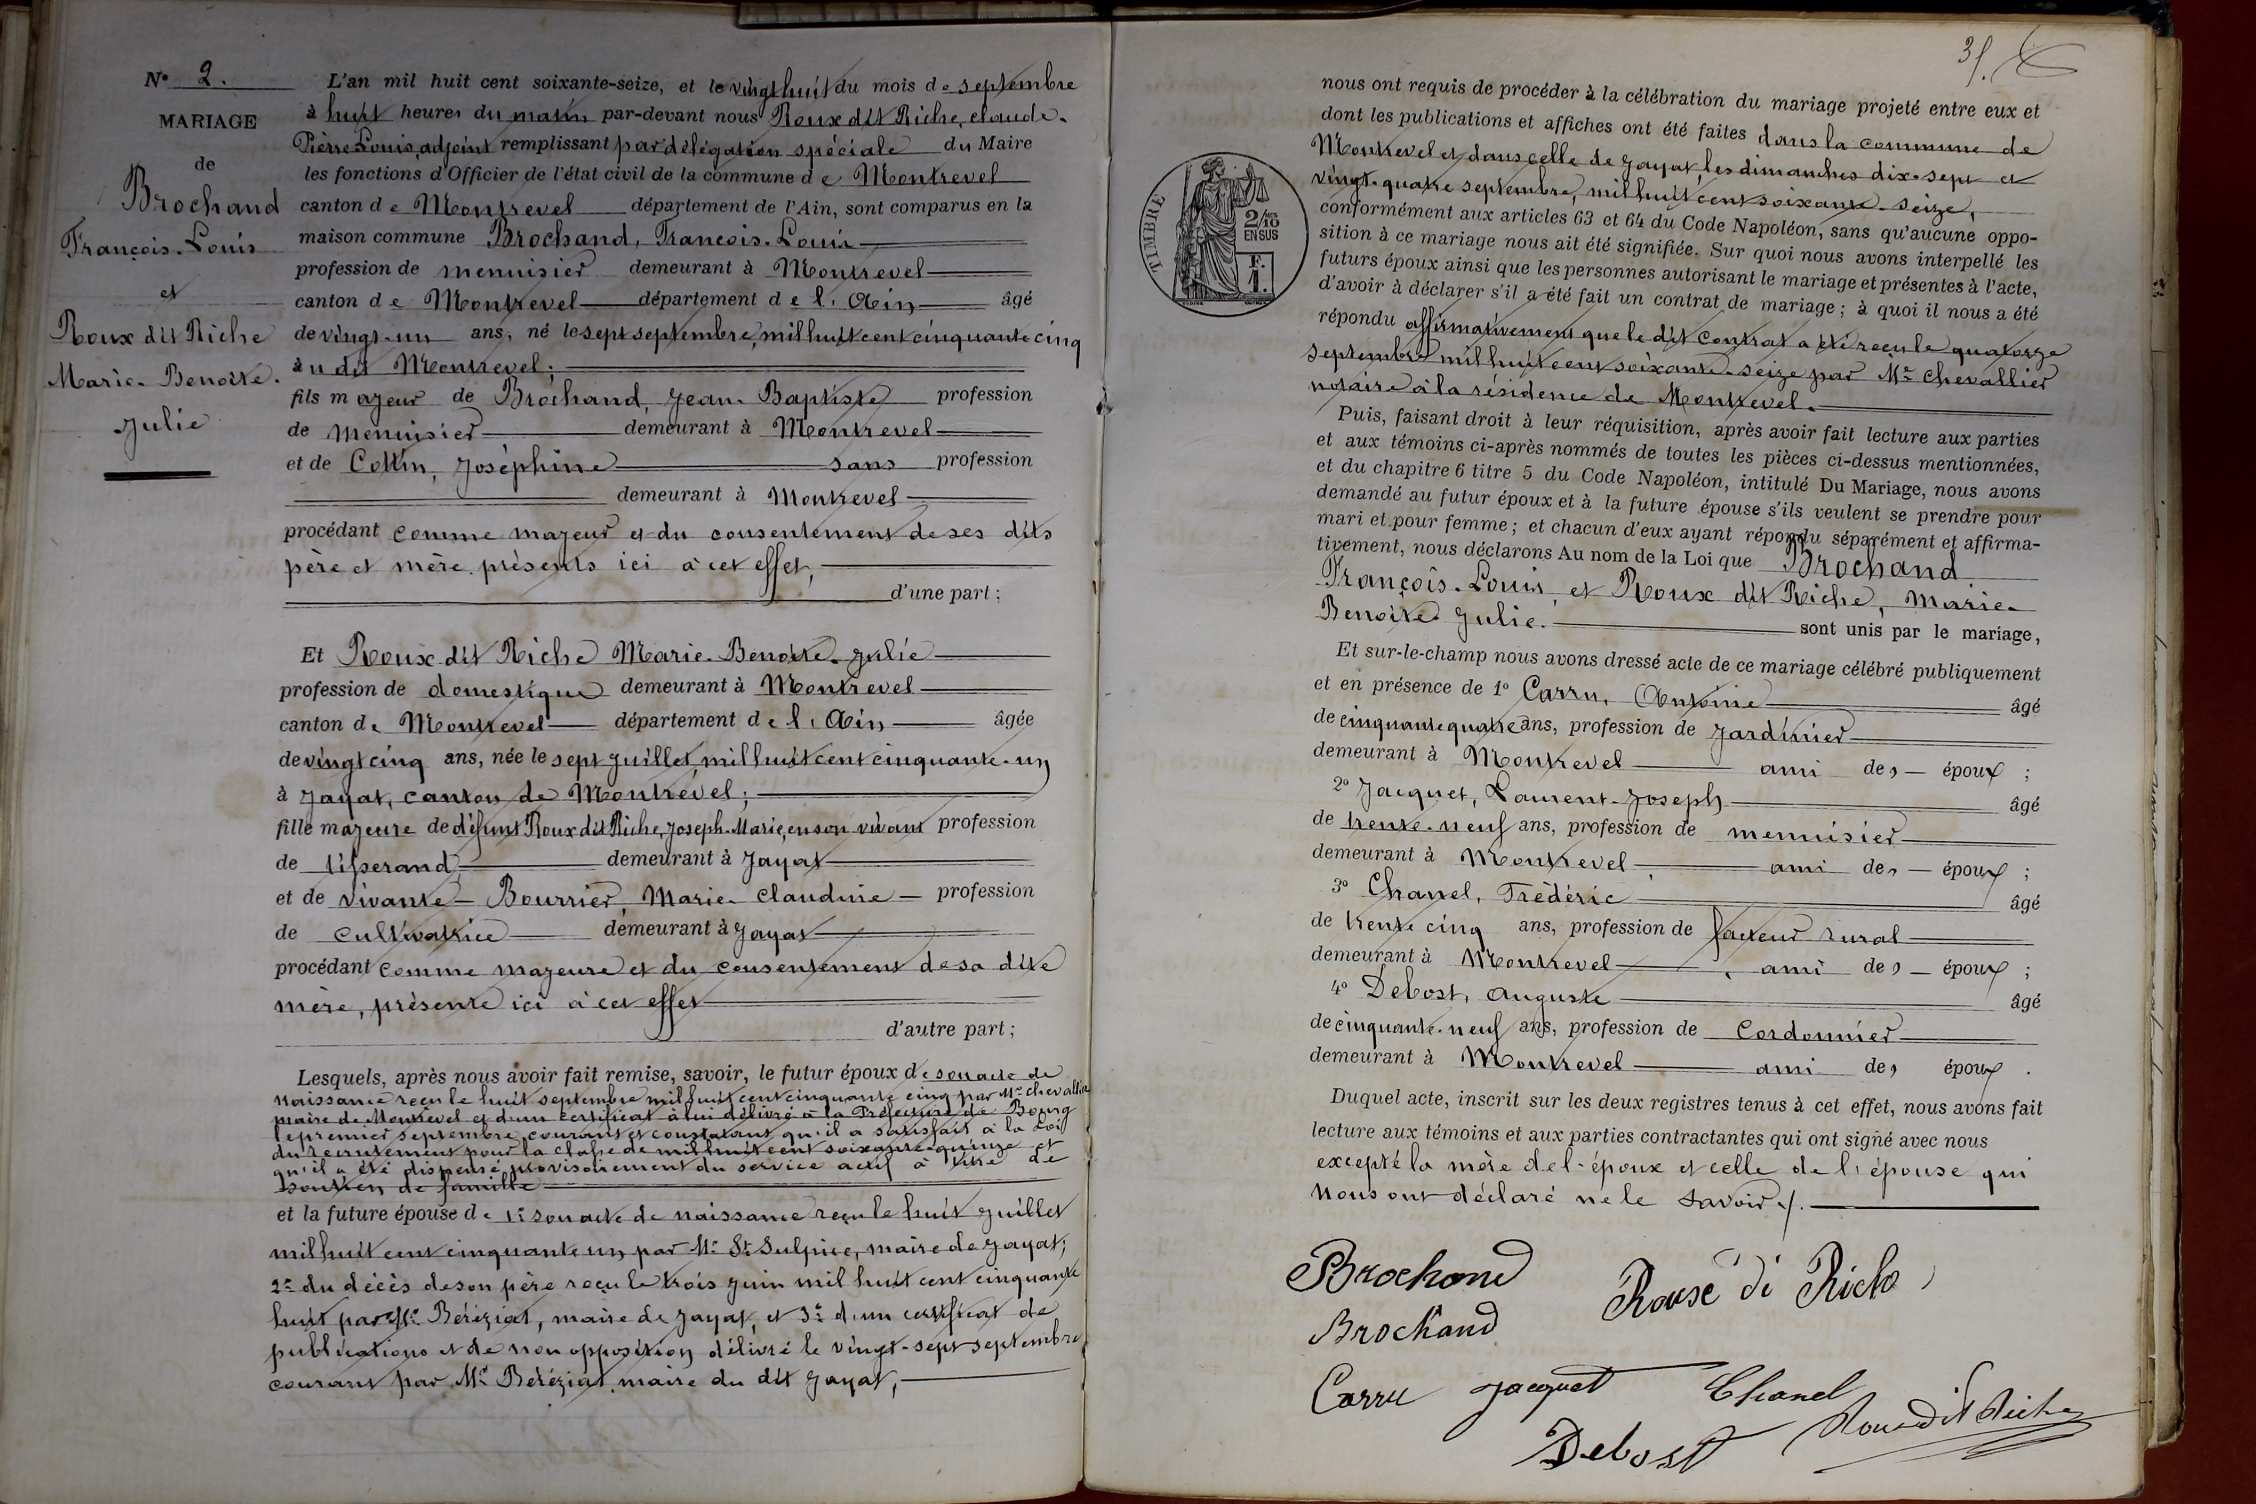 N° 2.
MARIAGE
de
Brochand
François-Louis
et
Roux dit Riche
Marie-Benoite-
Julie
L'an mil huit cent soixante-seize, et le vingt huit du mois de septembre
à huit heures du matin par-devant nous Roux dit Riche, claude-
Pierre Louis, adjoint remplissant par délégation spéciale du Maire
les fonctions d'Officier de l'état civil de la commune de Montrevel
canton de Montrevel département de l'Ain, sont comparus en la
maison commune Brochand, François-Louis
profession de menuisier demeurant à Montrevel
canton de Montrevel département de l'Ain âgé
de vingt-un ans, né le sept septembre, mil huit cent cinquante cinq
au dit Montrevel;
fils majeur de Brochand, Jean-Baptiste profession
de menuisier demeurant à Montrevel
et de Collin, Joséphine sans profession
demeurant à Montrevel
procédant comme majeur et du consentement de ses dits
père et mère présents ici à cet effet,
d'une part;
Et Roux dit Riche Marie-Benoite-Julie
profession de domestique demeurant à Montrevel
canton de Montrevel département de l'Ain âgée
de vingt cinq ans, née le sept juillet, mil huit cent cinquante-un
à Jayat, canton de Montrevel;
fille majeure de défunt Roux dit Riche, Joseph-Marie, en son vivant profession
de tisserand, demeurant à Jayat
et de vivante - Bourrier, Marie-Claudine profession
de cultivatrice demeurant à Jayat
procédant comme majeure et du consentement de sa dite
mère, présente ici à cet effet
d'autre part;
Lesquels, après nous avoir fait remise, savoir, le futur époux de son acte de
naissance reçu le huit septembre mil huit cent cinquante cinq par Mr chevallier
maire de Montrevel et d'un certificat à lui délivré à la Préfecture de Bourg
le premier septembre courant et constatant qu'il a satisfait à la Loi
du recrutement pour la classe de mil huit cent soixante-quinze et
qu'il a été dispensé provisoirement du service actif à titre de
soutien de famille
et la future épouse de 1° son acte de naissance reçu le huit juillet
mil huit cent cinquante un par Mr St Sulpice, maire de Jayat;
2° du décès de son père reçu le trois juin mil huit cent cinquante
huit par Mr Béréziat, maire de Jayat, et 3° d'un certificat de
publications et de non opposition délivré le vingt-sept septembre
courant par Mr Béréziat maire du dit Jayat,
31.
nous ont requis de procéder à la célébration du mariage projeté entre eux et
dont les publications et affiches ont été faites dans la commune de
Montrevel et dans celle de Jayat, les dimanches dix-sept et
vingt-quatre septembre, mil huit cent soixante-seize,
conformément aux articles 63 et 64 du Code Napoléon, sans qu'aucune oppo-
sition à ce mariage nous ait été signifiée. Sur quoi nous avons interpellé les
futurs époux ainsi que les personnes autorisant le mariage et présentes à l'acte,
d'avoir à déclarer s'il a été fait un contrat de mariage; à quoi il nous a été
répondu affirmativement que le dit contrat a été reçu le quatorze
septembre mil huit cent soixante-seize par Mr chevallier
notaire à la résidence de Montrevel.
Puis, faisant droit à leur réquisition, après avoir fait lecture aux parties
et aux témoins ci-après nommés de toutes les pièces ci-dessus mentionnées,
et du chapitre 6 titre 5 du Code Napoléon, intitulé Du Mariage, nous avons
demandé au futur époux et à la future épouse s'ils veulent se prendre pour
mari et pour femme; et chacun d'eux ayant répondu séparément et affirma-
tivement, nous déclarons Au nom de la Loi que Brochand
François-Louis, et Roux dit Riche, Marie-
Benoite Julie. sont unis par le mariage,
Et sur-le-champ nous avons dressé acte de ce mariage célébré publiquement
et en présence de 1° Carru, Antoine âgé
de cinquante quatre ans, profession de jardinier
demeurant à Montrevel ami des époux;
2° Jacquet, Laurent-Joseph âgé
de trente-neuf ans, profession de menuisier
demeurant à Montrevel, ami des époux;
3° Chanel, Frédéric âgé
de trente cinq ans, profession de facteur rural
demeurant à Montrevel, ami des époux;
4° Debost, auguste âgé
de cinquante-neuf ans, profession de cordonnier
demeurant à Montrevel ami des époux.
Duquel acte, inscrit sur les deux registres tenus à cet effet, nous avons fait
lecture aux témoins et aux parties contractantes qui ont signé avec nous
excepté la mère de l'époux et celle de l'épouse qui
nous ont déclaré ne le savoir./.
Brochand
Rouse di Riche
Brochand
Carru Jacquet Chanel
Debost Roux Dit Riche
TIMBRE
2/10
EN SUS
F.
1.